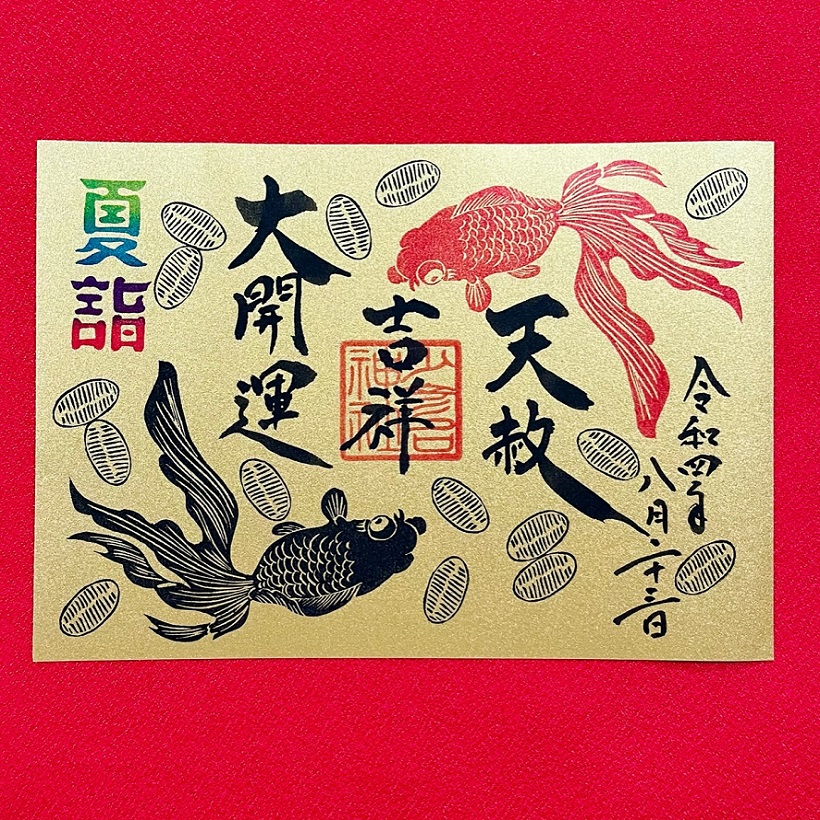 令和四年
八月二十三日
天赦
吉祥
大開運
夏詣
神社